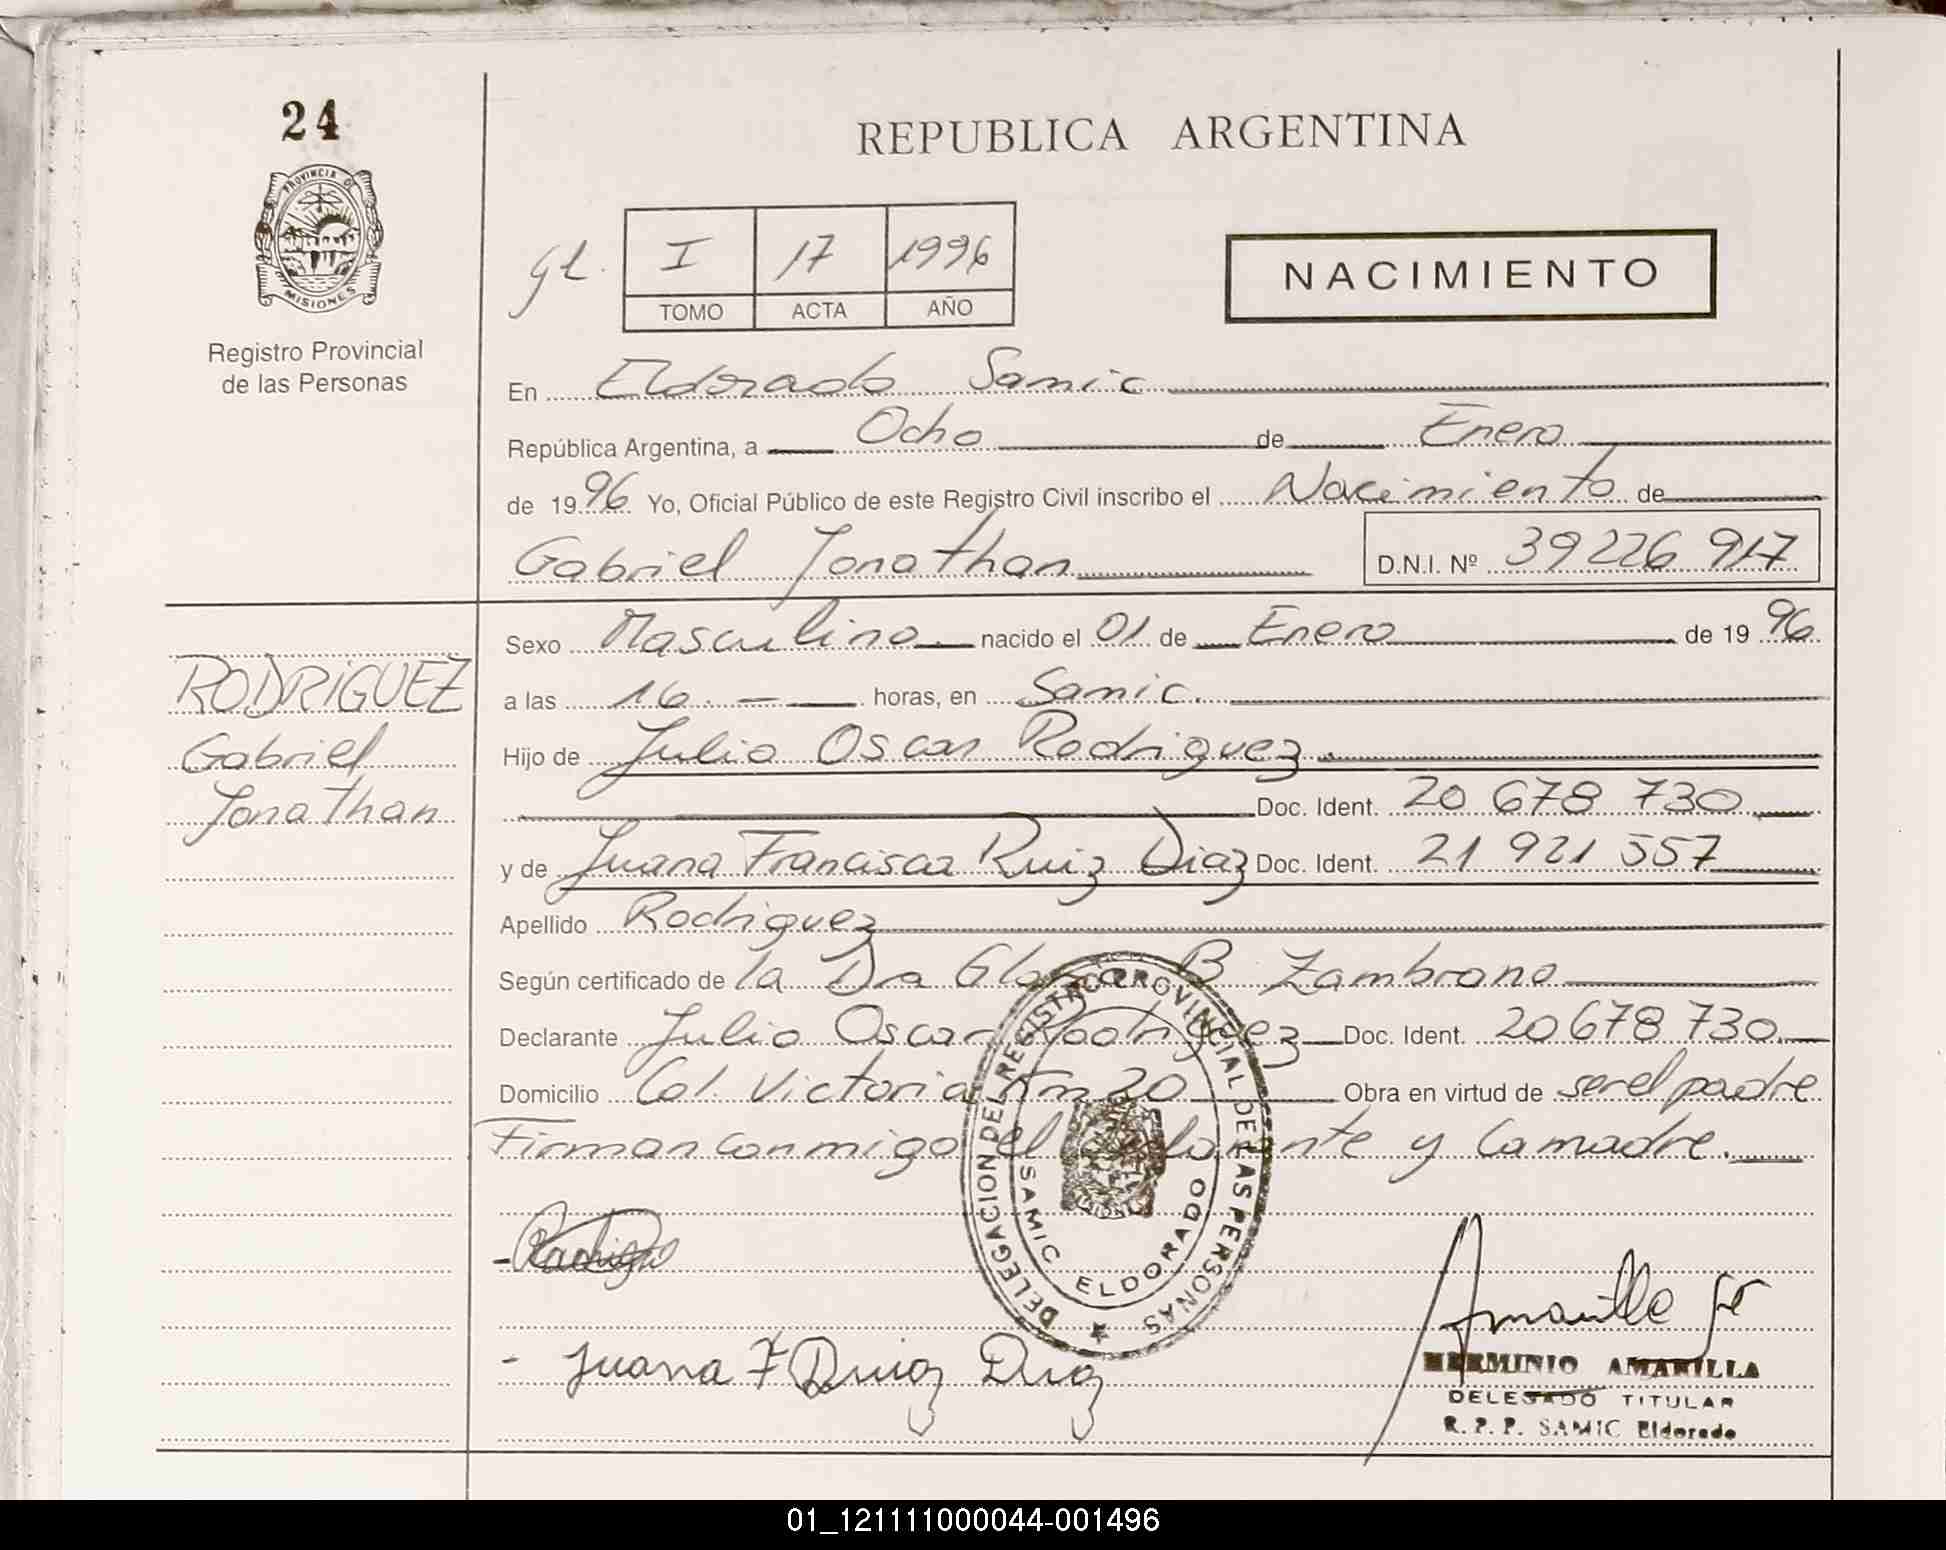 24
PROVINCIA DE
MISIONES
Registro Provincial
de las Personas
REPUBLICA ARGENTINA
I 17 1996
TOMO ACTA AÑO
NACIMIENTO
En Eldorado Samic
República Argentina, a Ocho de Enero
de 1996 Yo, Oficial Público de este Registro Civil inscribo el Nacimiento de
Gabriel Jonathan D.N.I. Nº 39226 917
Sexo Masculino nacido el 01 de Enero de 1996
a las 16. — horas, en Samic.
Hijo de Julio Oscar Rodriguez.
Doc. Ident. 20 678 730
y de Juana Francisca Ruiz Diaz Doc. Ident. 21 921 557
Apellido Rodriguez
Según certificado de la Dra B Zambrano
Declarante Julio Oscar Rodriguez Doc. Ident. 20678 730
Domicilio Col. Victoria Km 20 Obra en virtud de ser el padre
Firman conmigo el y la madre.
RODRIGUEZ
Gabriel
Jonathan
DELEGACION DEL REGISTRO PROVINCIAL DE LAS PERSONAS
SAMIC ELDORADO
- Juana F Ruiz Diaz
Amarilla
HERMINIO AMARILLA
DELEGADO TITULAR
R.P.P. SAMIC Eldorado
01_121111000044-001496